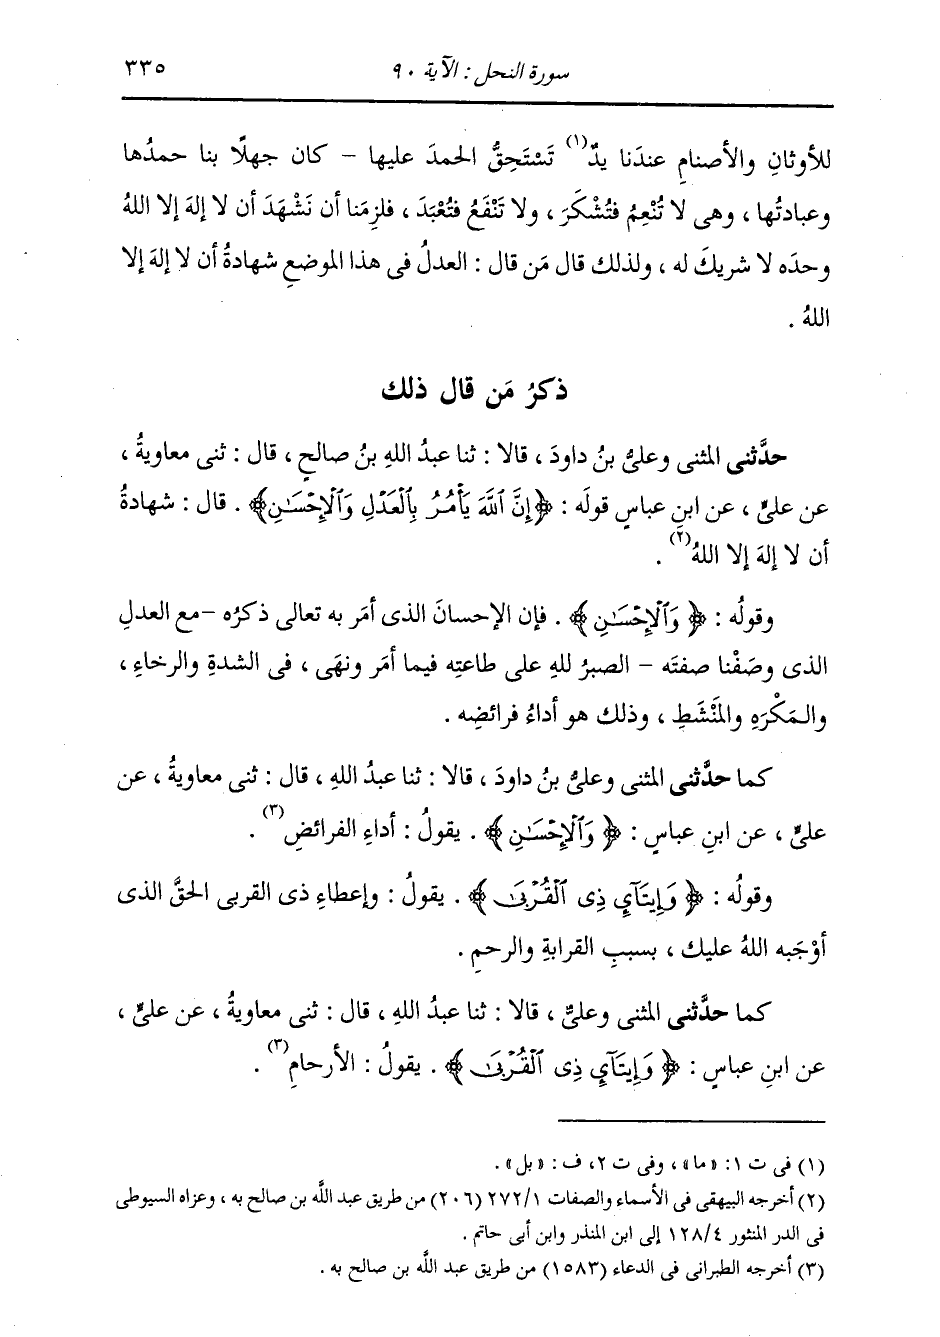 سورة النحل : الآية ٩٠ ٣٣٥
للأوثانِ والأصنامِ عندَنا يدٌ(١) تَسْتَحِقُّ الحمدَ عليها – كان جهلًا بنا حمدُها
وعبادتُها ، وهى لا تُنْعِمُ فتُشْكَرَ ، ولا تَنْفَعُ فتُعْبَدَ ، فلزِمَنا أن نَشْهَدَ أن لا إلهَ إلا اللهُ
وحدَه لا شريكَ له ، ولذلك قال مَن قال : العدلُ فى هذا الموضعِ شهادةُ أن لا إلهَ إلا
اللهُ .
ذكرُ مَن قال ذلك
حدَّثنى المثنى وعلىُّ بنُ داودَ ، قالا : ثنا عبدُ اللهِ بنُ صالحٍ ، قال : ثنى معاويةُ ،
عن علىٍّ ، عن ابنِ عباسٍ قولَه : ﴿إِنَّ ٱللَّهَ يَأْمُرُ بِٱلْعَدْلِ وَٱلْإِحْسَٰنِ﴾ . قال : شهادةُ
أن لا إلهَ إلا اللهُ(٢) .
وقولُه : ﴿ وَٱلْإِحْسَٰنِ ﴾ . فإن الإحسانَ الذى أمَر به تعالى ذكرُه –مع العدلِ
الذى وصَفْنا صفتَه – الصبرُ للهِ على طاعتِه فيما أمَر ونهَى ، فى الشدةِ والرخاءِ ،
والمَكْرَهِ والمَنْشَطِ ، وذلك هو أداءُ فرائضِه .
كما حدَّثنى المثنى وعلىُّ بنُ داودَ ، قالا : ثنا عبدُ اللهِ ، قال : ثنى معاويةُ ، عن
علىٍّ ، عن ابنِ عباسٍ : ﴿ وَٱلْإِحْسَٰنِ ﴾ . يقولُ : أداءِ الفرائضِ(٣) .
وقولُه : ﴿ وَإِيتَآئِ ذِى ٱلْقُرْبَىٰ ﴾ . يقولُ : وإعطاءِ ذى القربى الحقَّ الذى
أوْجَبه اللهُ عليك ، بسببِ القرابةِ والرحمِ .
كما حدَّثنى المثنى وعلىٌّ ، قالا : ثنا عبدُ اللهِ ، قال : ثنى معاويةُ ، عن علىٍّ ،
عن ابنِ عباسٍ : ﴿ وَإِيتَآئِ ذِى ٱلْقُرْبَىٰ ﴾ . يقولُ : الأرحامِ(٣) .
(١) فى ت ١: «ما» ، وفى ت ٢، ف : «بل» .
(٢) أخرجه البيهقى فى الأسماء والصفات ٢٧٢/١ (٢٠٦) من طريق عبد اللَّه بن صالح به ، وعزاه السيوطى
فى الدر المنثور ١٢٨/٤ إلى ابن المنذر وابن أبى حاتم .
(٣) أخرجه الطبرانى فى الدعاء (١٥٨٣) من طريق عبد اللَّه بن صالح به .